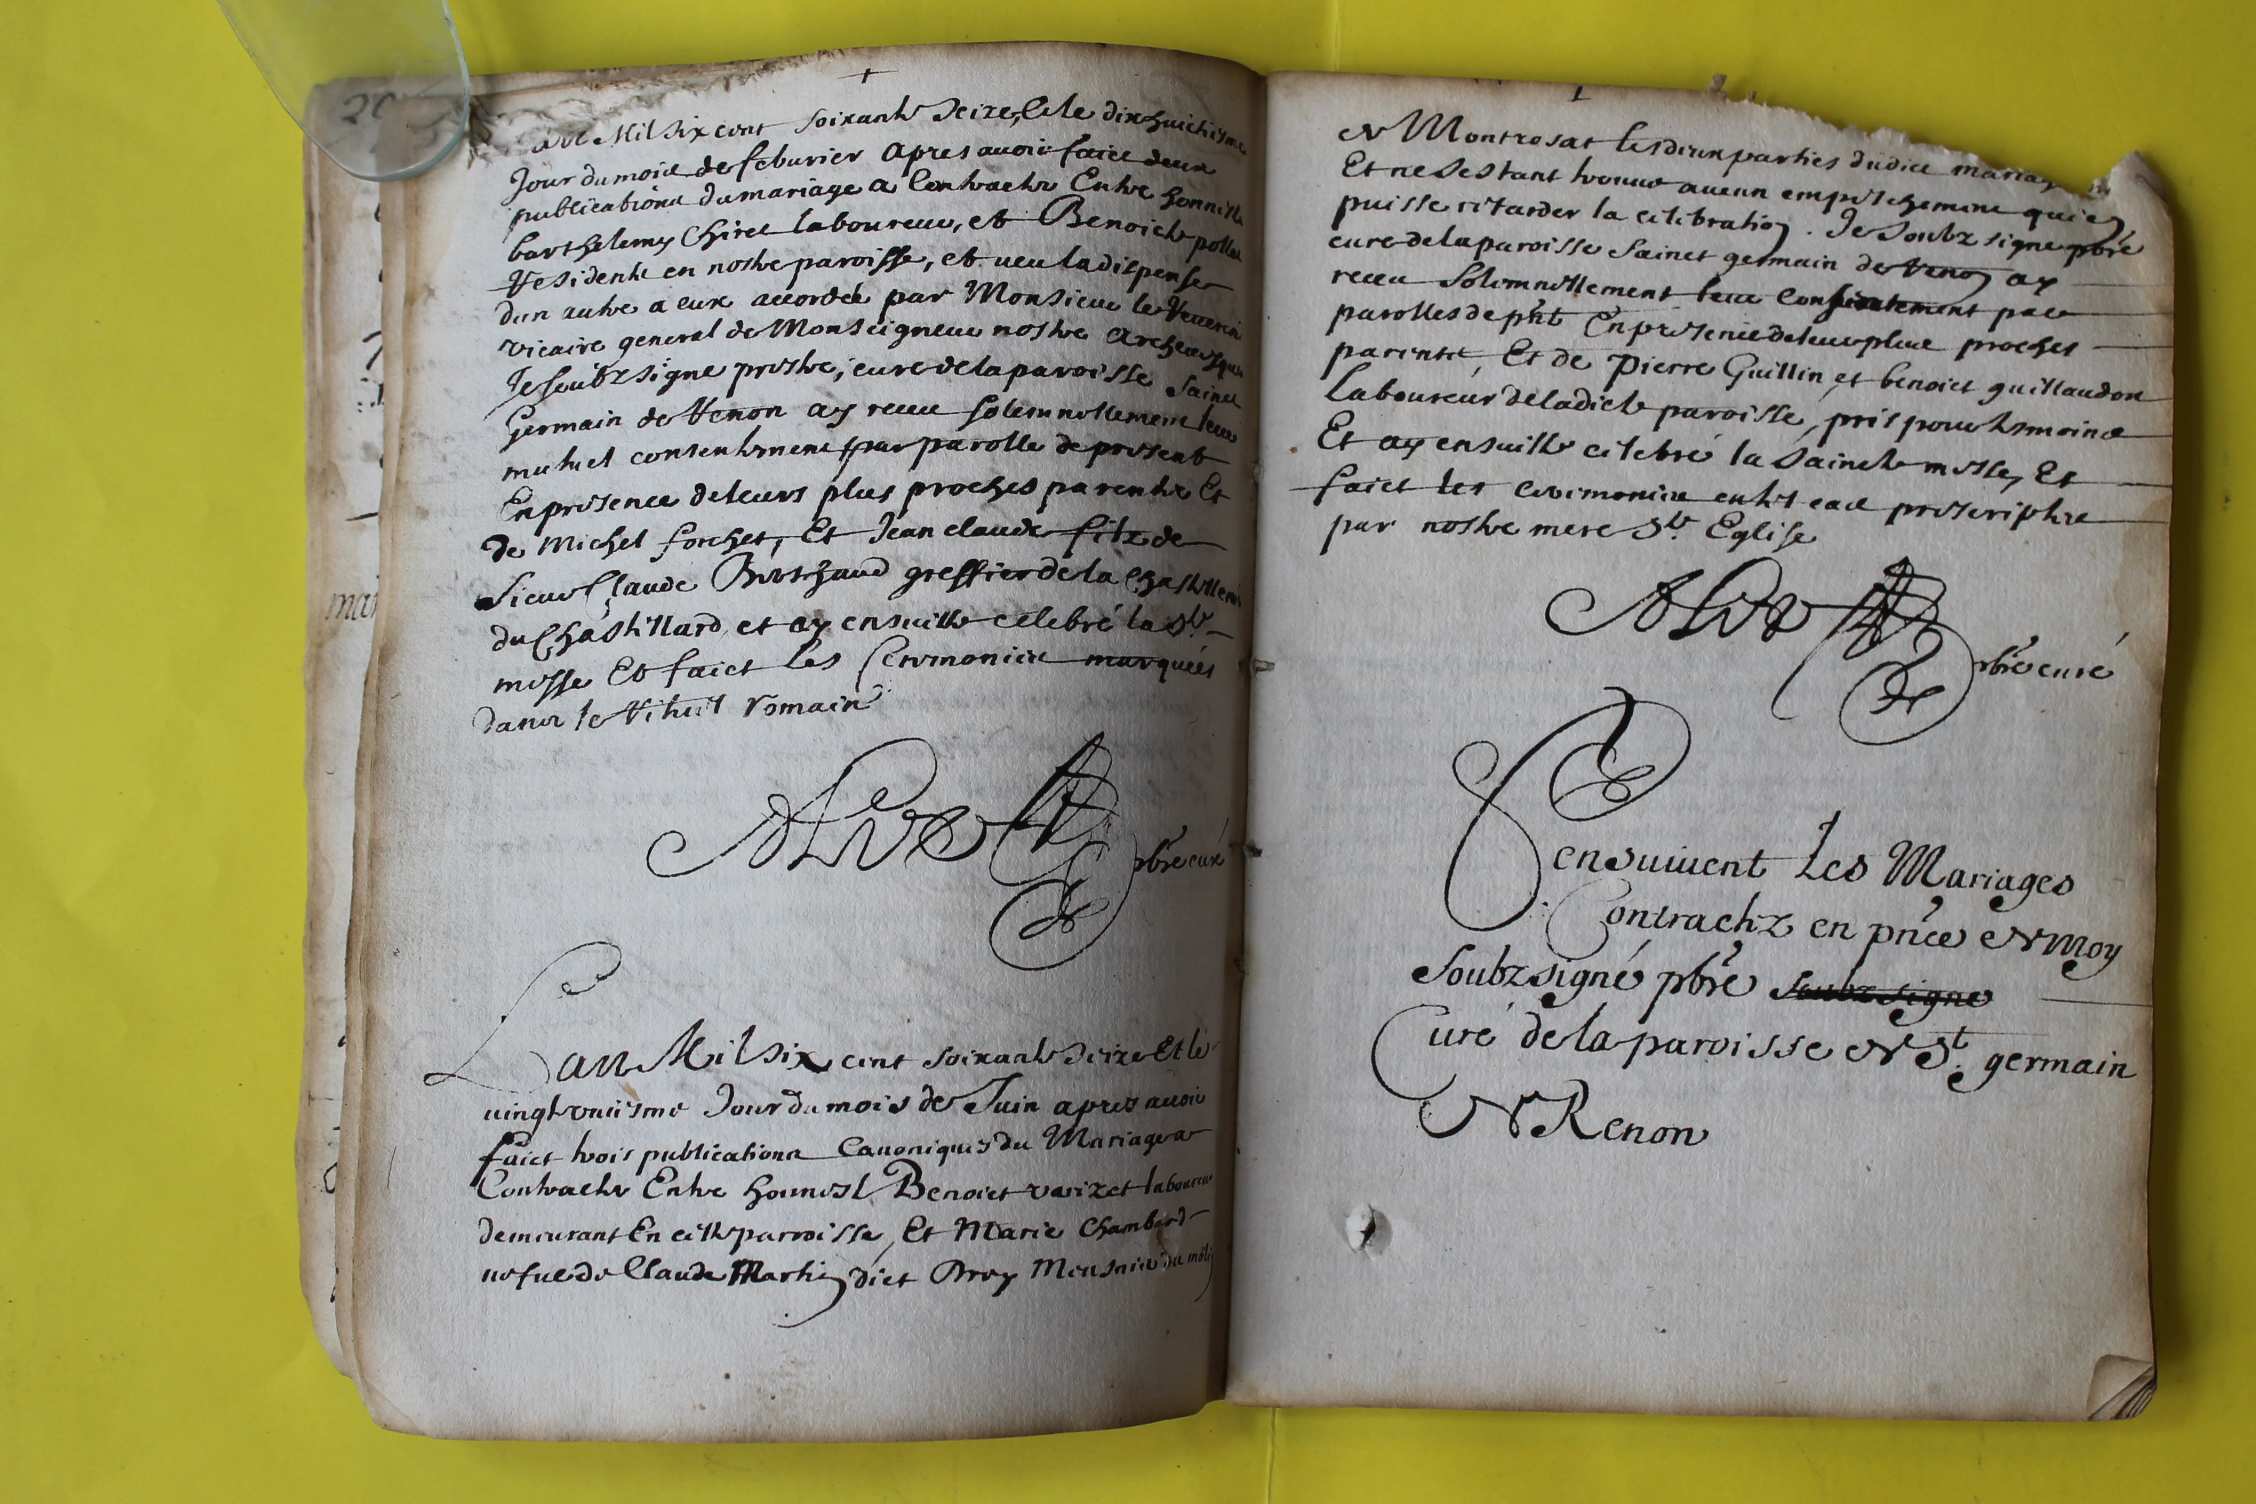 Lan Mil six cent soixante seize, et le dix huictiesme
Jour du mois de feburier apres auoir faict deux
publications du mariage a Contracter Entre honneste
barthelemy Chiret laboureur, et Benoicte pollet
Residents en nostre paroisse, et ueu la dispense
dun autre a eux accordée par Monsieur le
vicaire general de Monseigneur nostre Archeuesque
Je soubzsigne prestre, cure de la paroisse Sainct
Germain de Renon ay receu solemnellement leur
mutuel consentement par parolle de present
En presence de leurs plus proches parents Et
de Michel forchet, Et Jean claude filz de
Sieur Claude Berthaud greffier de la Chastellenie
du Chastillard, et ay ensuitte celebré la Ste
messe Et faict les Ceremonies marquées
dans le Rituel romain
pbre curé
Lan Mil six cent soixante seize Et le
uingt uniesme Jour du mois de Juin apres auoir
faict trois publications Canoniques du Mariage a
Contracter Entre honneste Benoict laboureur
demeurant En cette parroisse, Et Marie Chambard
uefue de Claude Martin dict Broy Meusnier du
de Montrosat lesdictes parties dudict mariage
Et ne sestant trouué aucun empeschement qui en
puisse retarder la celebration. Je soubzsigné pbre
curé de la paroisse Sainct germain de Renon ay
receu Solemnellement leur Consentement par
parolles de pnt En presence de leurs plus proches
parents, Et de Pierre Guillin et benoict guillaudon
Laboureur de ladicte paroisse, pris pour tesmoins
Et ay ensuitte celebré la saincte messe, Et
faict les ceremonies en tel cas prescriptes
par nostre mere Ste Eglise
pbre curé
Sensuiuent Les Mariages
Contractez en pnce de moy
Soubzsigné pbre soubzsigne
Curé de la paroisse de St. germain
de Renon